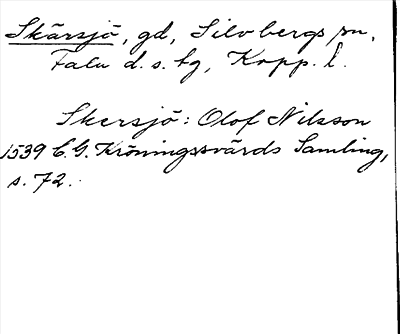 Skärsjö, gd, Silvbergs sn,
Falu d.s. tg, Kopp. l.
Skersjö: Olof Nilsson
1539 C.G. Kröningssvärds Samling,
s. 72.